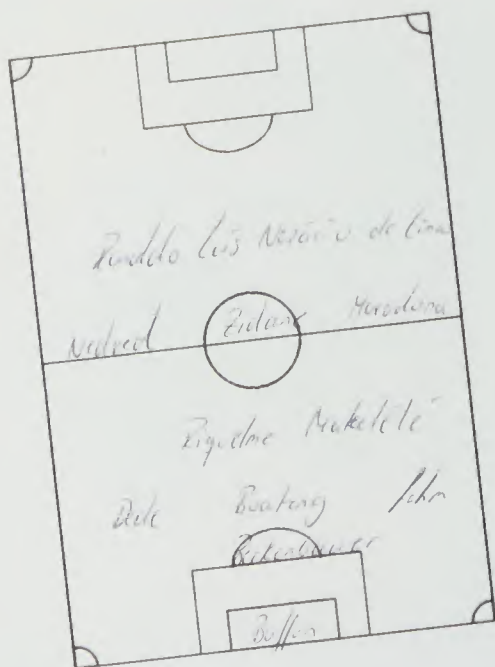 Ronaldo Luis Nazário de Lima
Nedved Zidane Maradona
Riquelme Makélélé
Boateng Lahm
Beckenbauer
Buffon